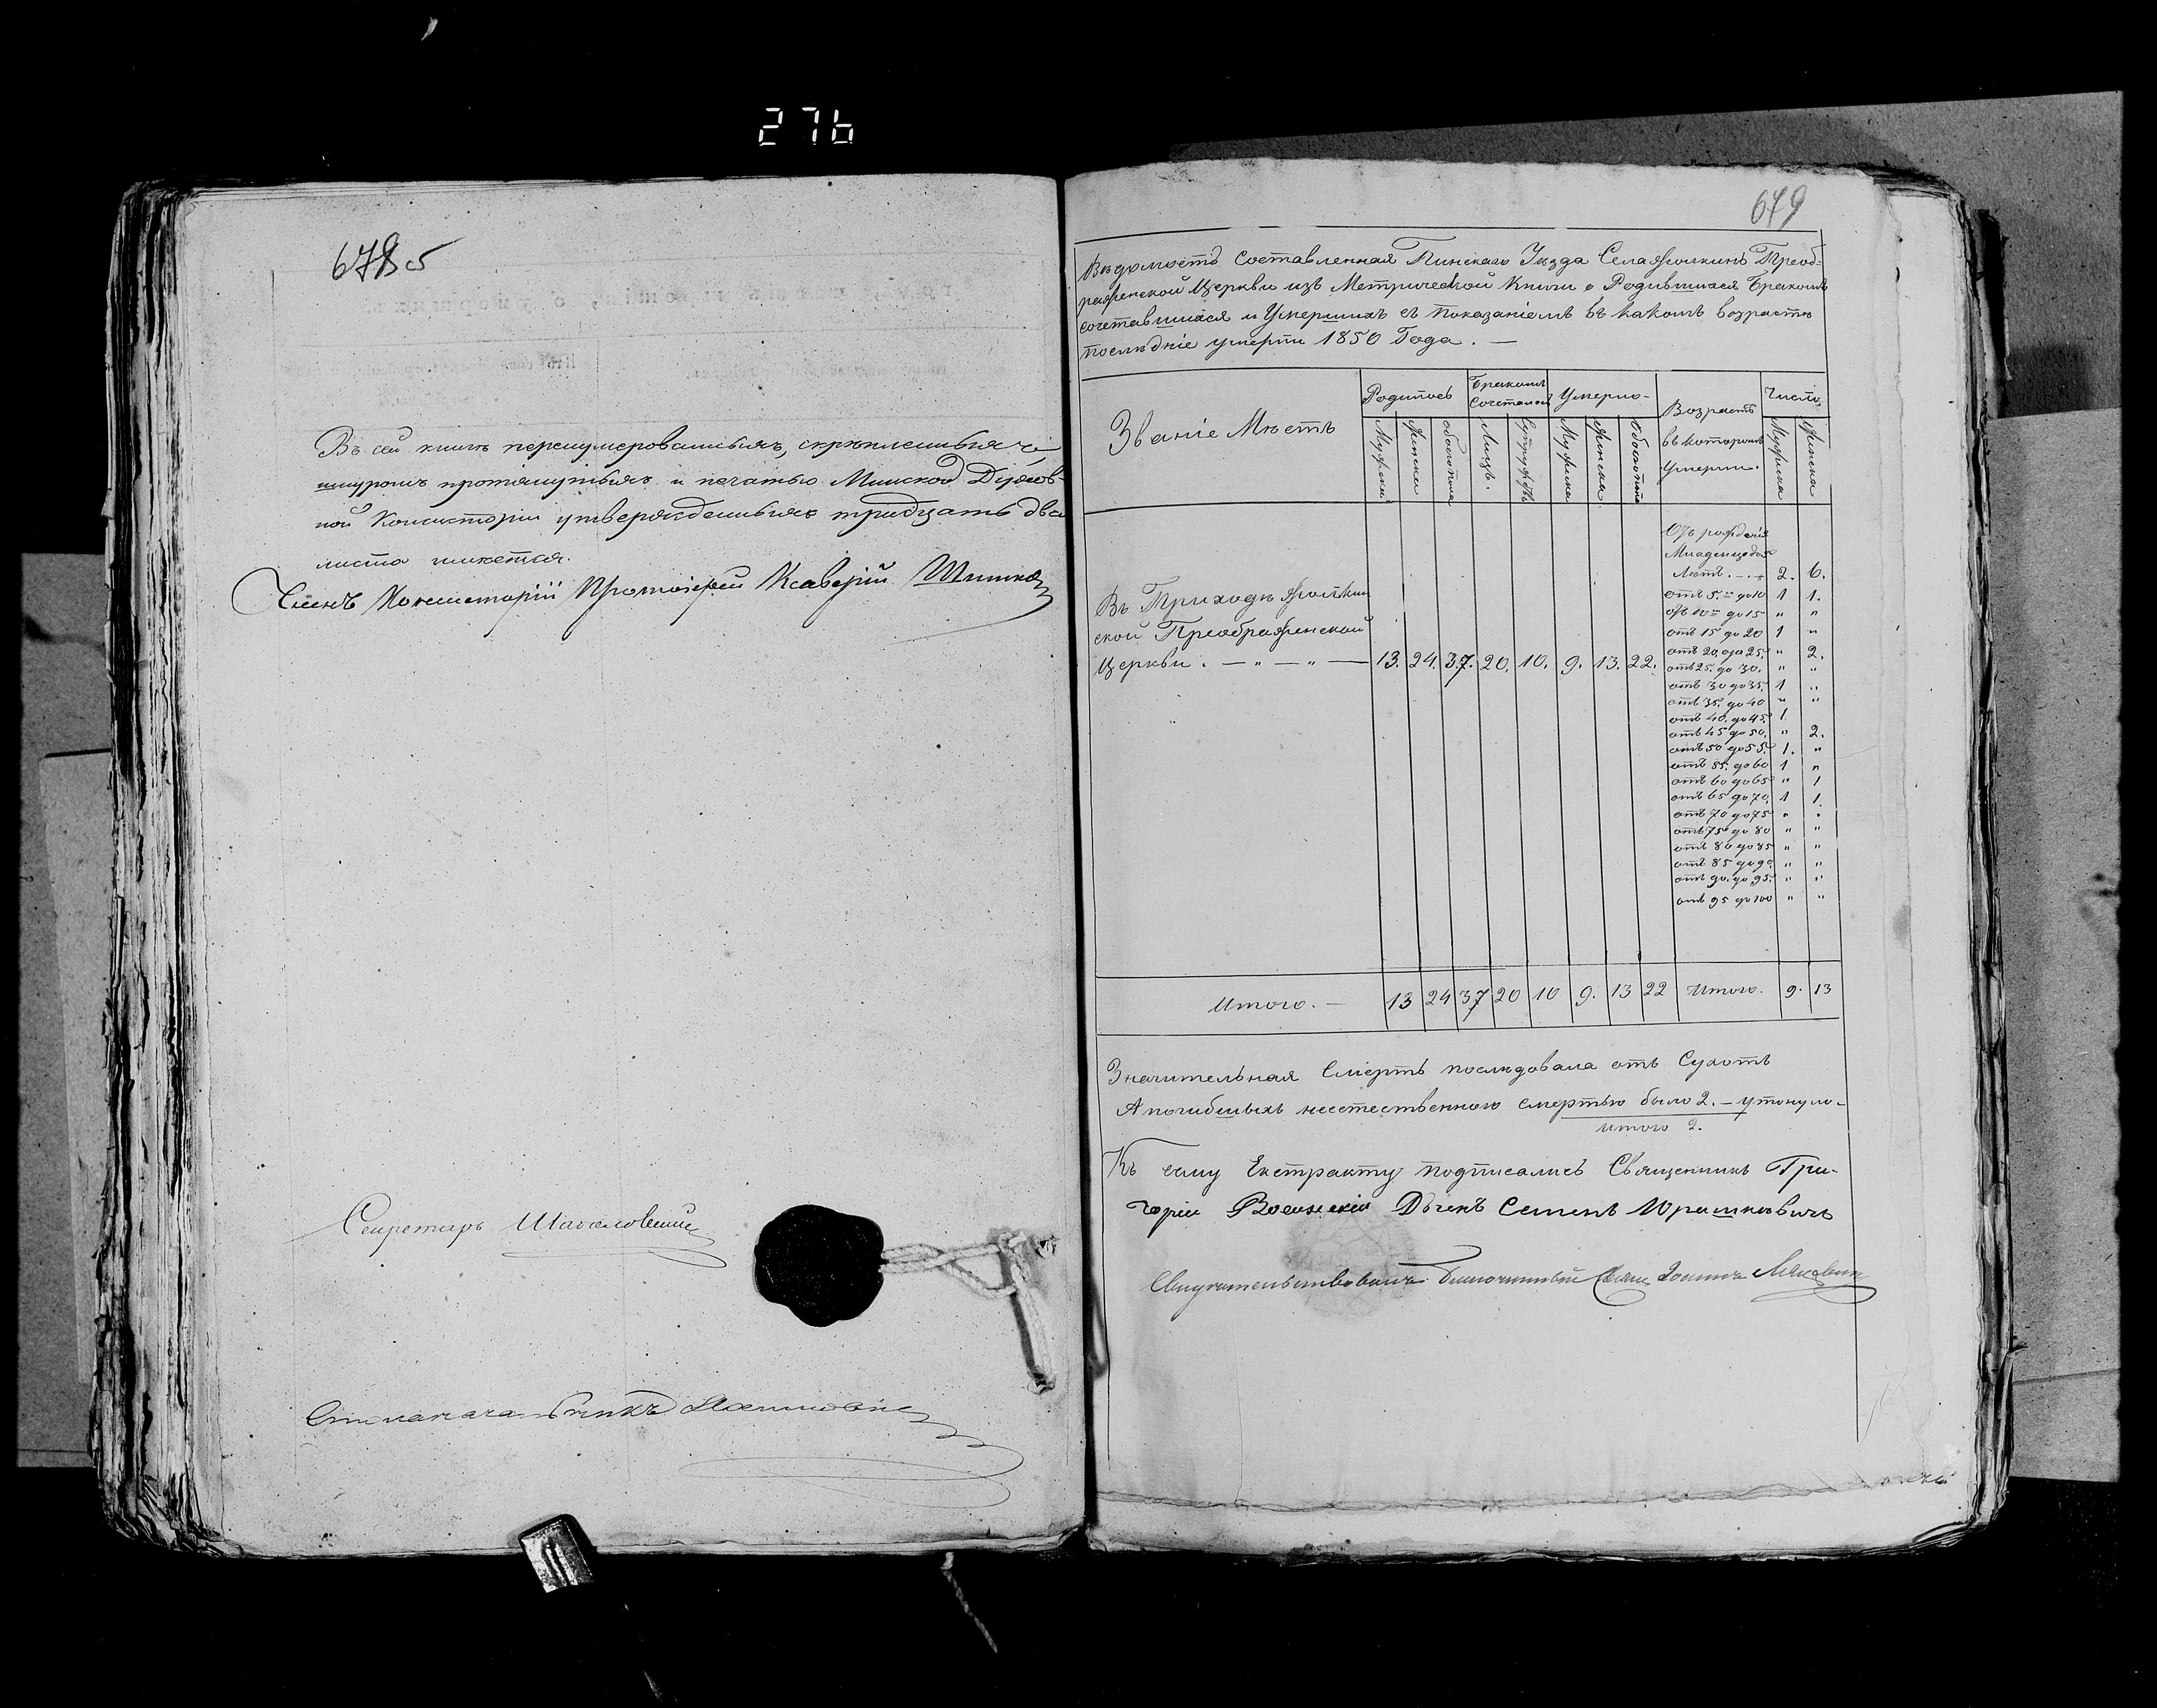 276
678 об
Въ сей книгѣ перенумерованныхъ, скрѣпленныхъ и
шнуромъ протянутыхъ и печатью Минской Духов-
ной Консисторіи утвержденныхъ тридцать два
листа имѣется.
Членъ Консисторіи Протоіерей Ксаверій
Секретарь
Столоначальникъ
679
Вѣдомость Составленная Пинскаго Уѣзда Села Жолкинъ Преоб-
раженской Церкви изъ Метрической Книги о Родившихся Бракомъ
сочетавшихся и Умершихъ съ показаніемъ въ какомъ возрастѣ
послѣдніе умерли 1850 Года. —
Званіе Мѣстъ
Родилось
Бракомъ Сочеталось
Умерло
Возрастъ въ которомъ умерли.
Число
Мужска
Женска
Обоего пола
Лицъ.
Супружествъ
Мужска
Женска
Обоего пола
Мужска
Женска
Отъ рожденія
Младенцевъ до 5
Лѣтъ. 2. 6.
отъ 5. до 10 1 1.
отъ 10 до 15 " "
отъ 15 до 20 1 "
отъ 20. до 25. " 2.
отъ 25. до 30. " "
отъ 30 до 35. 1 "
отъ 35. до 40 " "
отъ 40. до 45. 1.
отъ 45 до 50. " 2.
отъ 50 до 55. 1. "
отъ 55. до 60 1 "
отъ 60 до 65 " 1
отъ 65 до 70. 1 1.
отъ 70 до 75 " "
отъ 75 до 80 " "
отъ 80 до 85 " "
отъ 85 до 90. " "
отъ 90. до 95. " "
отъ 95 до 100 " "
Въ Приходѣ Жолкин
ской Преображенской
Церкви. — " — " — 13. 24. 37. 20. 10. 9. 13. 22.
Итого. — 13 24 37 20 10 9. 13 22 Итого. 9. 13
Значительная Смерть послѣдовала отъ Сухотъ
А погибшихъ неестественною смертью было 2. — утонуло.
итого 2.
Къ сему Екстракту подписались Священникъ Гри-
горій Дьячекъ Семенъ
Свидѣтельствовалъ Благочинный Свящ Іоаннъ